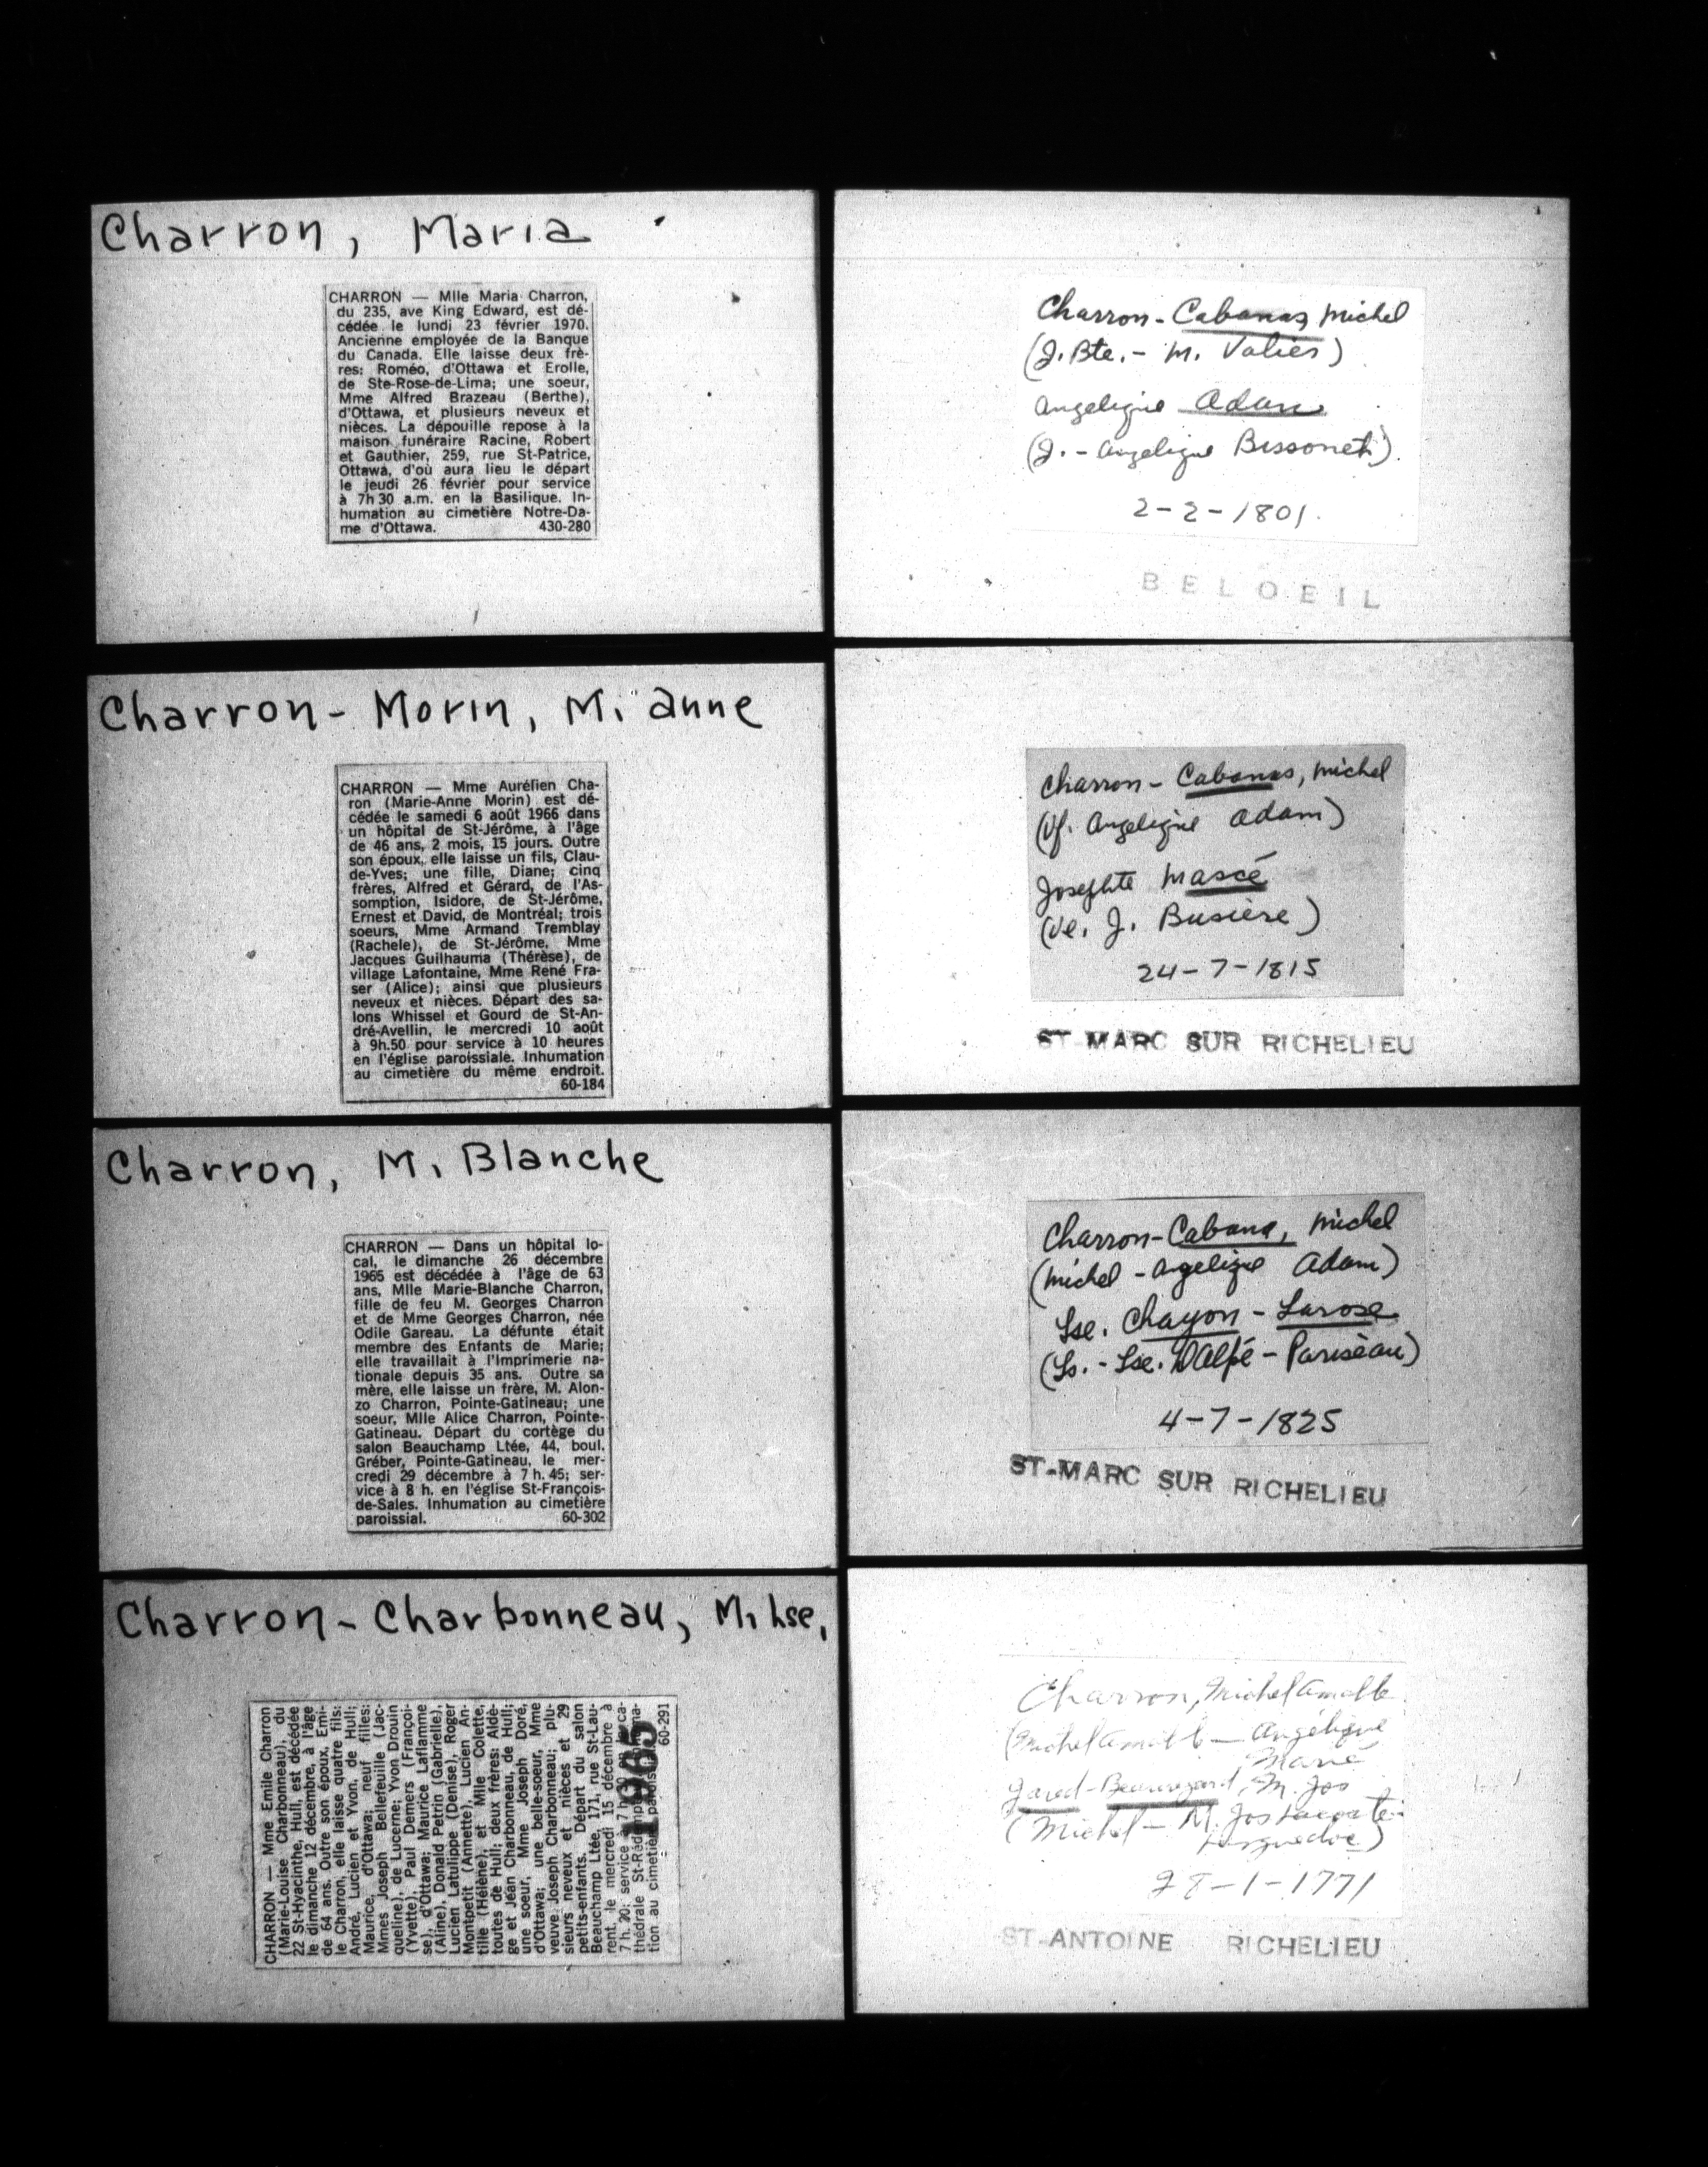 Charron, Maria
CHARRON — Mlle Maria Charron,
du 235, ave King Edward, est dé-
cédée le lundi 23 février 1970.
Ancienne employée de la Banque
du Canada. Elle laisse deux frè-
res: Roméo, d'Ottawa et Erolle,
de Ste-Rose-de-Lima; une soeur,
Mme Alfred Brazeau (Berthe),
d'Ottawa, et plusieurs neveux et
nièces. La dépouille repose à la
maison funéraire Racine, Robert
et Gauthier, 259, rue St-Patrice,
Ottawa, d'où aura lieu le départ
le jeudi 26 février pour service
à 7h 30 a.m. en la Basilique. In-
humation au cimetière Notre-Da-
me d'Ottawa. 430-280
Charron-Morin, M. anne
CHARRON — Mme Aurélien Cha-
ron (Marie-Anne Morin) est dé-
cédée le samedi 6 août 1966 dans
un hôpital de St-Jérôme, à l'âge
de 46 ans, 2 mois, 15 jours. Outre
son époux, elle laisse un fils, Clau-
de-Yves; une fille, Diane; cinq
frères, Alfred et Gérard, de l'As-
somption, Isidore, de St-Jérôme,
Ernest et David, de Montréal; trois
soeurs, Mme Armand Tremblay
(Rachele), de St-Jérôme, Mme
Jacques Guilhauma (Thérèse), de
village Lafontaine, Mme René Fra-
ser (Alice); ainsi que plusieurs
neveux et nièces. Départ des sa-
lons Whissel et Gourd de St-An-
dré-Avellin, le mercredi 10 août
à 9h.50 pour service à 10 heures
en l'église paroissiale. Inhumation
au cimetière du même endroit.
60-184
Charron, M. Blanche
CHARRON — Dans un hôpital lo-
cal, le dimanche 26 décembre
1965 est décédée à l'âge de 63
ans, Mlle Marie-Blanche Charron,
fille de feu M. Georges Charron
et de Mme Georges Charron, née
Odile Gareau. La défunte était
membre des Enfants de Marie;
elle travaillait à l'Imprimerie na-
tionale depuis 35 ans. Outre sa
mère, elle laisse un frère, M. Alon-
zo Charron, Pointe-Gatineau; une
soeur, Mlle Alice Charron, Pointe-
Gatineau. Départ du cortège du
salon Beauchamp Ltée, 44, boul.
Gréber, Pointe-Gatineau, le mer-
credi 29 décembre à 7 h. 45; ser-
vice à 8 h. en l'église St-François-
de-Sales. Inhumation au cimetière
paroissial. 60-302
Charron-Charbonneau, M. Lse,
CHARRON — Mme Emile Charron
(Marie-Louise Charbonneau), du
22 St-Hyacinthe, Hull, est décédée
le dimanche 12 décembre, à l'âge
de 64 ans. Outre son époux, Emi-
le Charron, elle laisse quatre fils:
André, Lucien et Yvon, de Hull;
Maurice, d'Ottawa; neuf filles:
Mmes Joseph Bellefeuille (Jac-
queline), de Lucerne; Yvon Drouin
(Yvette), Paul Demers (Françoi-
se), d'Ottawa; Maurice Laflamme
(Aline), Donald Petrin (Gabrielle),
Lucien Latulippe (Denise), Roger
Montpetit (Annette), Lucien An-
tille (Hélène), et Mlle Collette,
toutes de Hull; deux frères: Aldè-
ge et Jean Charbonneau, de Hull;
une soeur, Mme Joseph Doré,
d'Ottawa; une belle-soeur, Mme
veuve Joseph Charbonneau; plu-
sieurs neveux et nièces et 29
petits-enfants. Départ du salon
Beauchamp Ltée, 171, rue St-Lau-
rent, le mercredi 15 décembre à
7 h. 30; service à 7 h. ca-
thédrale St-Rédempt
tion au cimetière
60-291
1965
Charron-Cabanas, Michel
(J. Bte. - M. Valiès)
Angelique Adam
(J. - Angelique Bissonet)
2-2-1801.
BELOEIL
Charron-Cabanas, Michel
(Vf. Angelique Adam)
Josephte Massé
(Ve. J. Busière)
24-7-1815
ST-MARC SUR RICHELIEU
Charron-Cabana, Michel
(Michel - Angelique Adam)
Lse. Chayon-Larose
(Ls. - Lse. Dalpé-Pariseau)
4-7-1825
ST-MARC SUR RICHELIEU
Charron, Michel
Angélique
Marié
Jared-Beauregard, M. Jos
(Michel - M. Jos
28-1-1771
ST-ANTOINE RICHELIEU